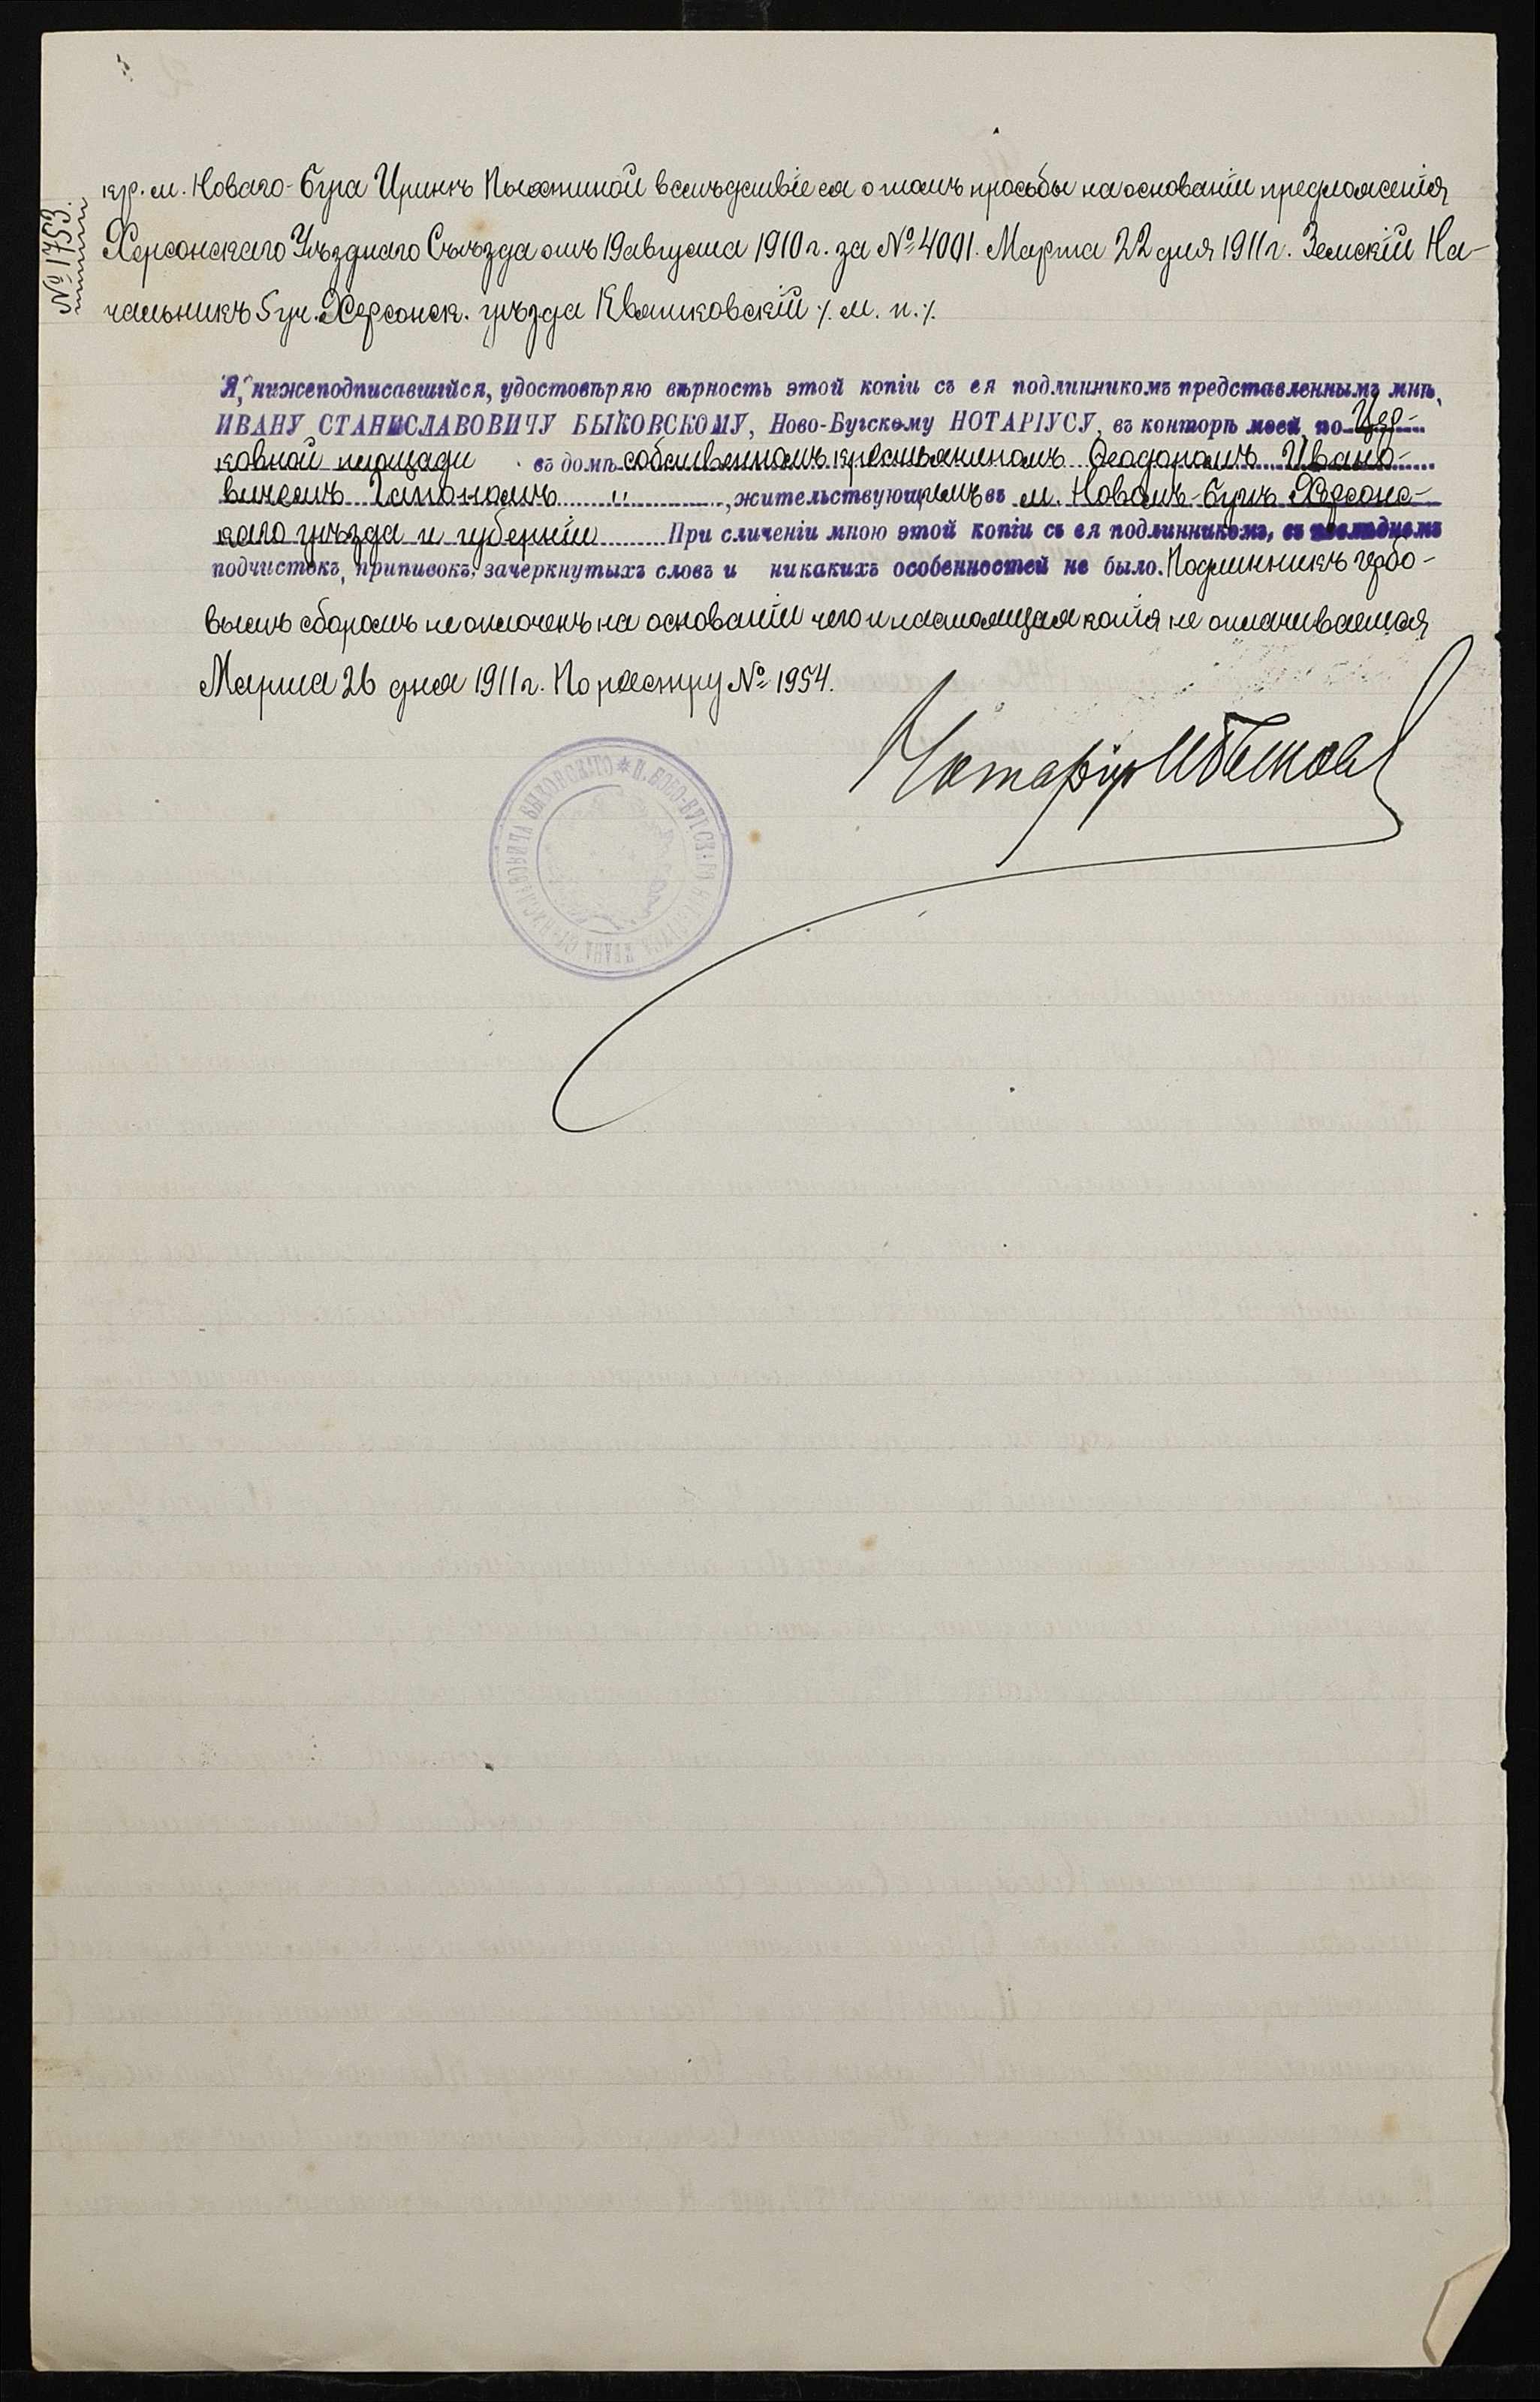 № 1753.
кр. м. Новаго-Буга Иринѣ Пыхтиной вслѣдствіе ея о томъ просьбы на основаніи предложенія
Херсонскаго Уѣзднаго Съѣзда отъ 19 августа 1910 г. за № 4001. Марта 22 дня 1911 г. Земскій На-
чальникъ 5 уч. Херсонск. уѣзда Квятковскій /. м. п. /.
Я, нижеподписавшійся, удостовѣряю вѣрность этой копіи съ ея подлинникомъ представленнымъ мнѣ,
ИВАНУ СТАНИСЛАВОВИЧУ БЫКОВСКОМУ, Ново-Бугскому НОТАРІУСУ, въ конторѣ моей, по Цер-
ковной площади въ домѣ собственномъ крестьяниномъ Ѳеодоромъ Ивано-
вичемъ Гапономъ „ , жительствующимъ въ м. Новомъ-Бугѣ Херсонс-
каго уѣзда и губерніи При сличеніи мною этой копіи съ ея подлинникомъ, въ послѣднемъ
подчистокъ, приписокъ, зачеркнутыхъ словъ и никакихъ особенностей не было. Подлинникъ гербо-
вымъ сборомъ не оплоченъ на основаніи чего и настоящая копія не оплачивается
Марта 26 дня 1911 г. По реестру № 1954.
Нотаріус И Быковс
* Н. НОВО-БУГСКАГО НОТАРІУСА ИВАНА СТАНИСЛАВОВИЧА БЫКОВСКАГО